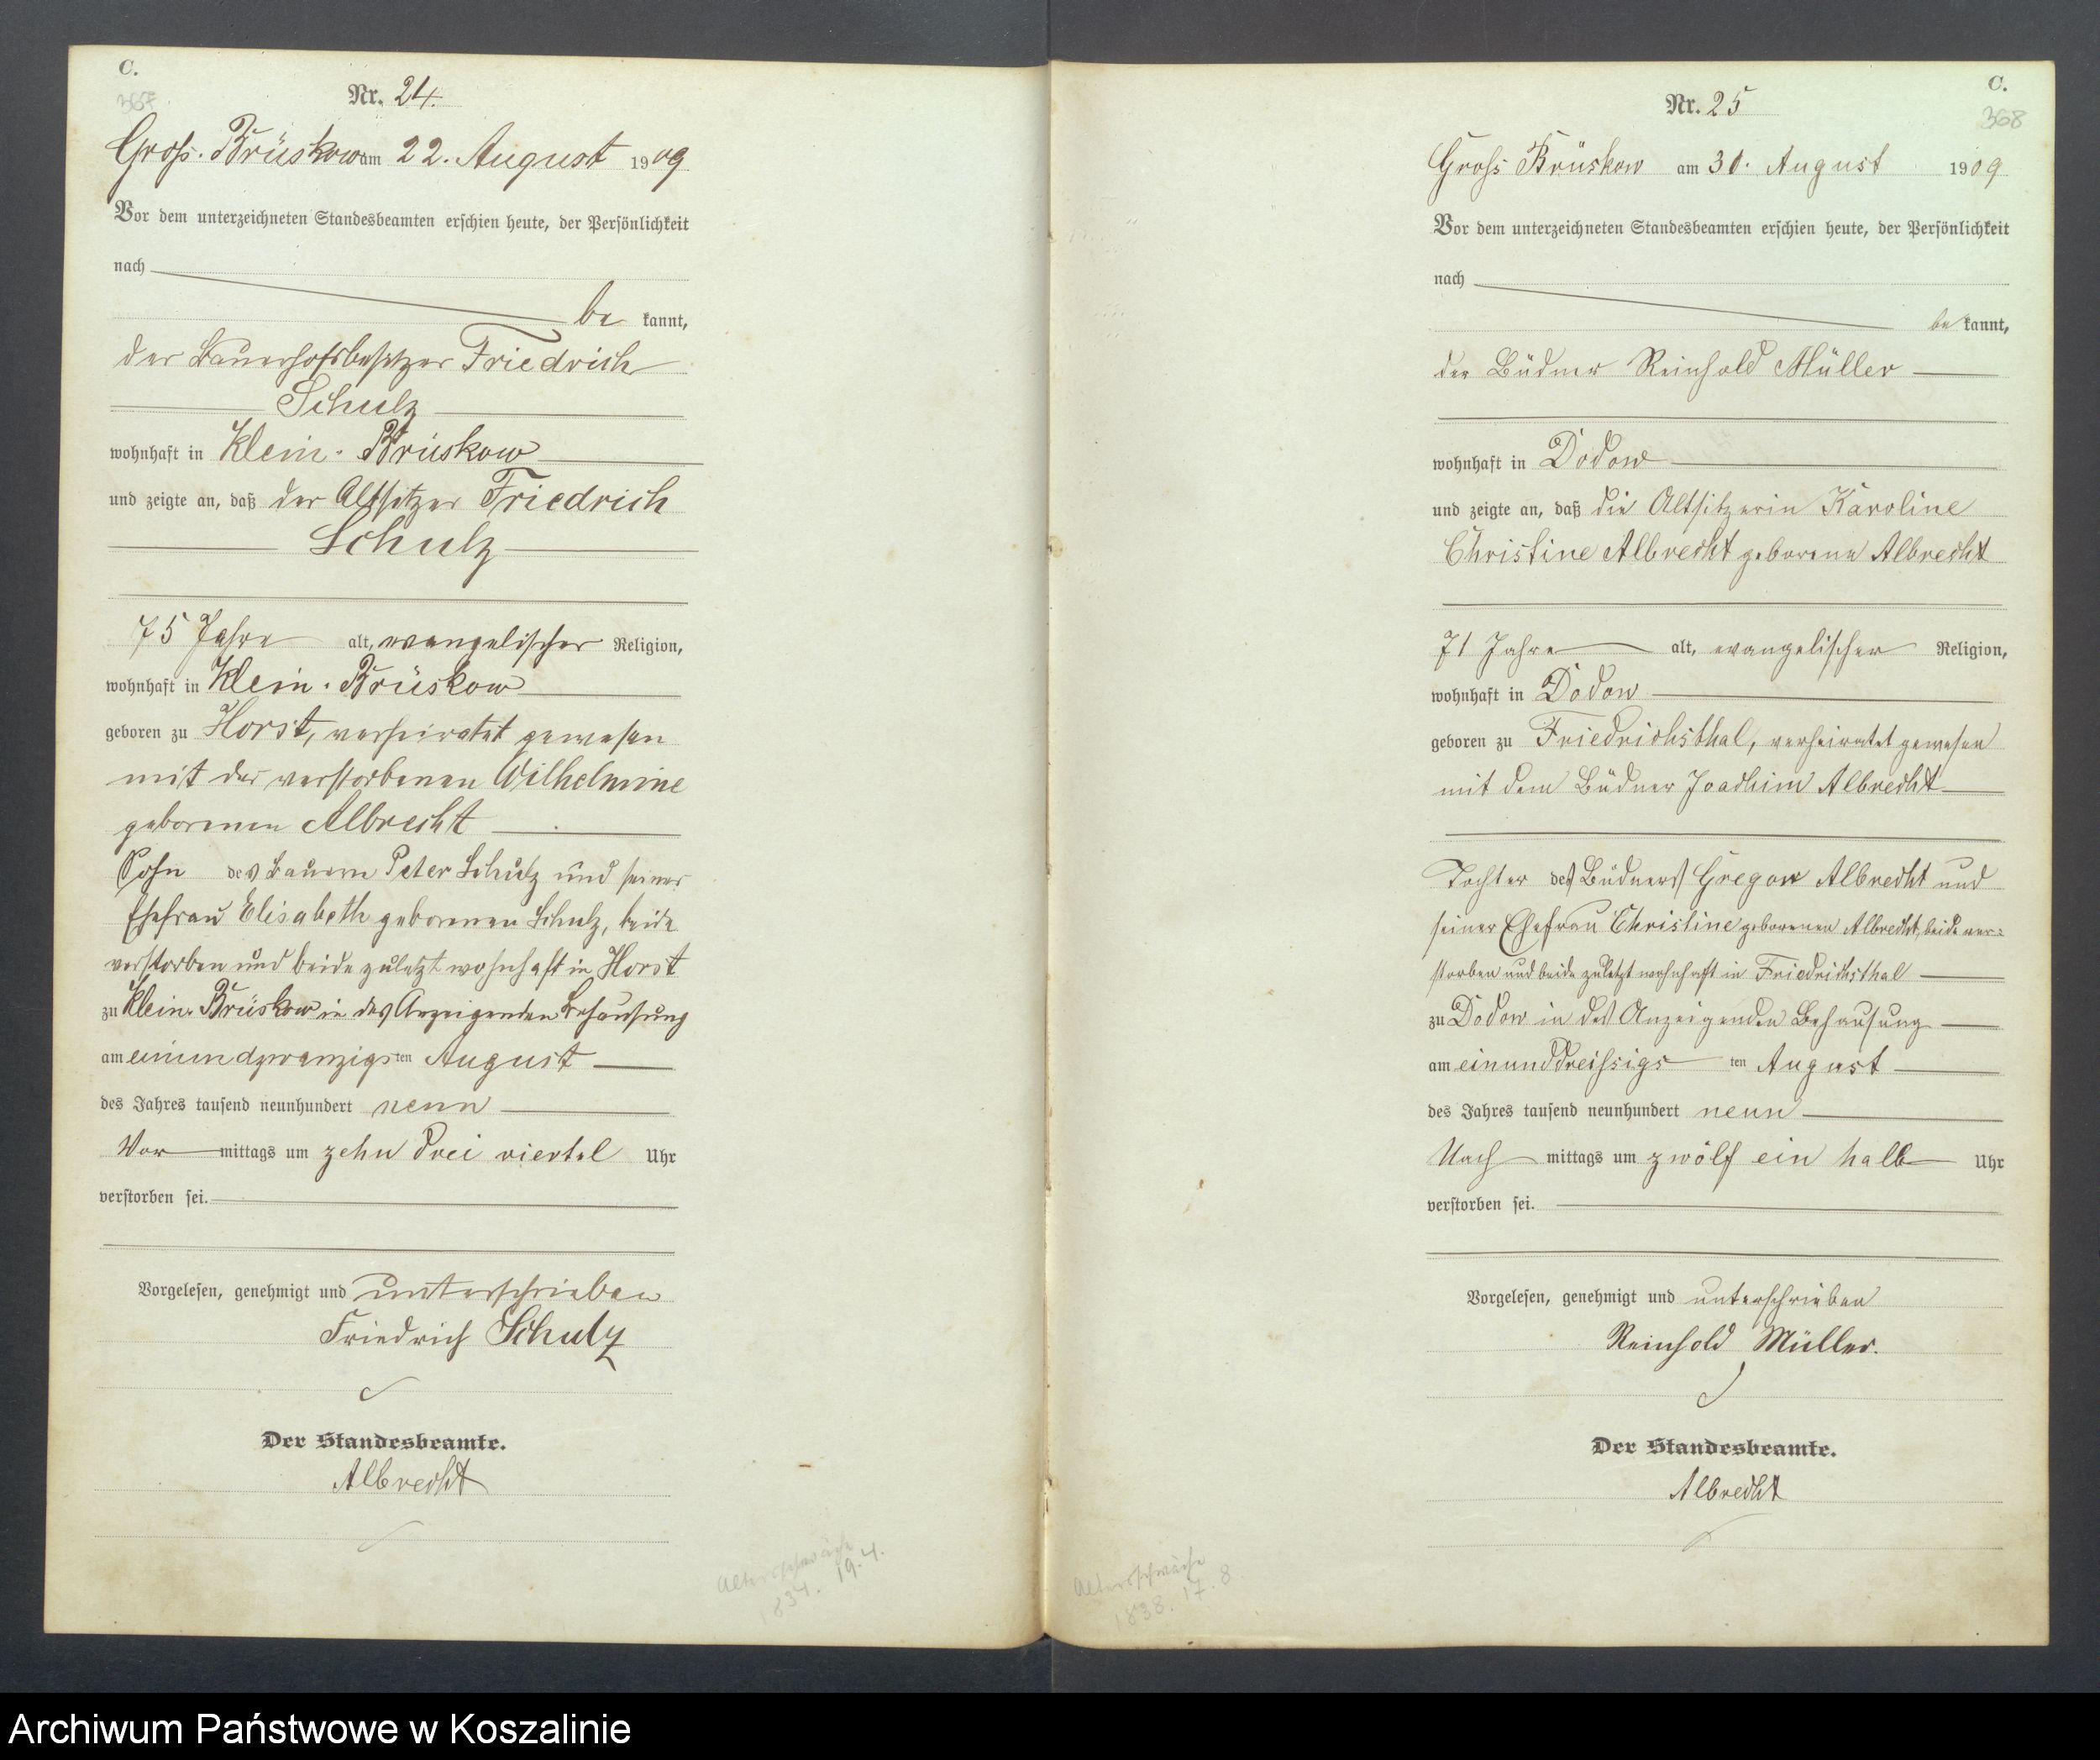 C.
367
Nr. 24.
Gross-Brüskow am 22. August 1909
Vor dem unterzeichneten Standesbeamten erschien heute, der Persönlichkeit
nach
be kannt,
der Bauerhofsbesitzer Friedrich
Schulz
wohnhaft in Klein-Brüskow
und zeigte an, daß der Altsitzer Friedrich
Schulz
75 Jahre alt, evangelischer Religion,
wohnhaft in Klein-Brüskow
geboren zu Horst, verheiratet gewesen
mit der verstorbenen Wilhelmine
geborenen Albrecht
Sohn des Bauern Peter Schulz und seiner
Ehefrau Elisabeth geborenen Schulz, beide
verstorben und beide zuletzt wohnhaft in Horst
zu Klein-Brüskow in des Anzeigenden Behausung
am einundzwanzigsten August
des Jahres tausend neunhundert neun
Vor mittags um zehn drei viertel Uhr
verstorben sei.
Vorgelesen, genehmigt und unterschrieben
Friedrich Schulz
Der Standesbeamte.
Albrecht
Altersschwäche
1834. 19.4.
C.
368
Nr. 25
Gross Brüskow am 31. August 1909
Vor dem unterzeichneten Standesbeamten erschien heute, der Persönlichkeit
nach
be kannt,
der Büdner Reinhold Müller
wohnhaft in Dodow
und zeigte an, daß die Altsitzerin Karoline
Christine Albrecht geborene Albrecht
71 Jahre alt, evangelischer Religion,
wohnhaft in Dodow
geboren zu Friedrichsthal, verheiratet gewesen
mit dem Büdner Joachim Albrecht
Tochter des Büdners Gregor Albrecht und
seiner Ehefrau Christine geborenen Albrecht, beide ver=
storben und beide zuletzt wohnhaft in Friedrichsthal
zu Dodow in des Anzeigenden Behausung
am einunddreissigs ten August
des Jahres tausend neunhundert neun
Nach mittags um zwölf ein halb Uhr
verstorben sei.
Vorgelesen, genehmigt und unterschrieben
Reinhold Müller.
Der Standesbeamte.
Albrecht
Altersschwäche
1838. 17.8
Archiwum Państwowe w Koszalinie